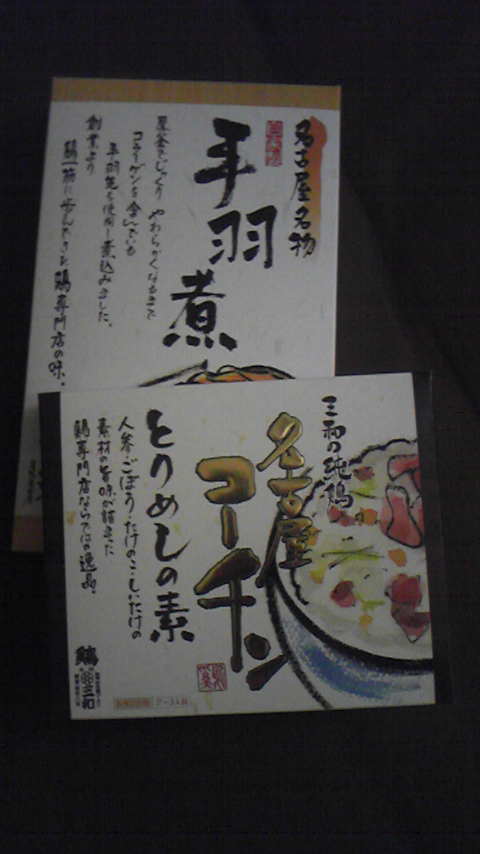 名古屋名物
手羽煮
屋釜でじっくり やわらかくなるまで
コラーゲンを含んでいる
手羽先を使用し煮込みました。
創業より
鶏一筋に歩んできた鶏専門店の味。
三和の純鶏
名古屋
コーチン
とりめしの素
人参・ごぼう・たけのこ・しいたけの
素材の旨味が詰まった
鶏専門店ならではの逸品。
鶏三和